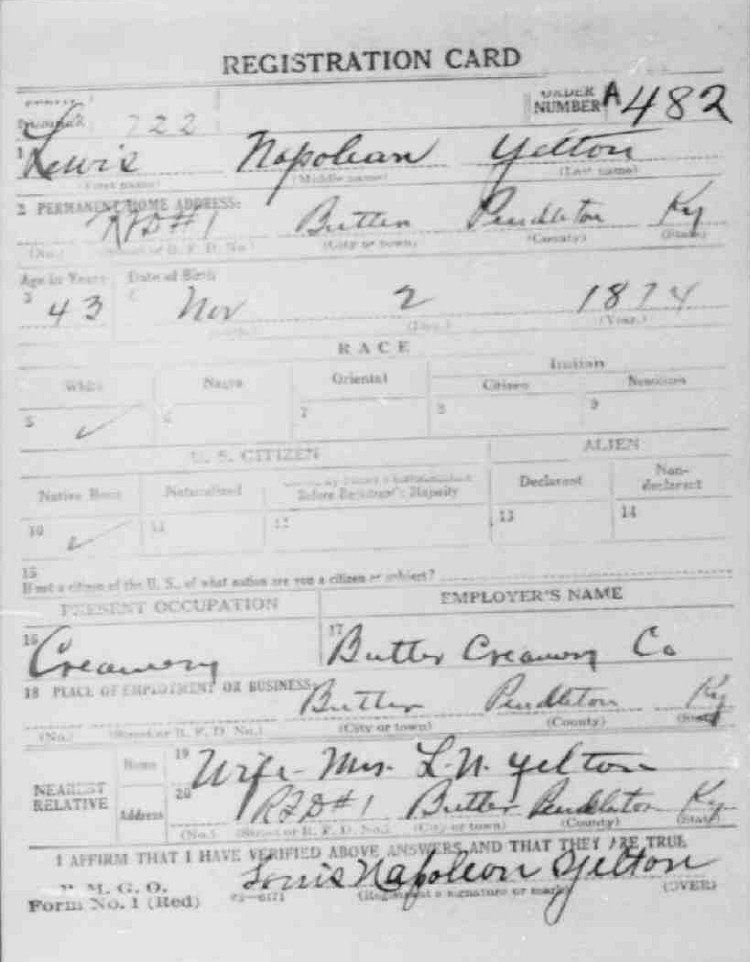 REGISTRATION CARD
722 ORDER NUMBER A482
1 Lewis Napolean Yelton
(First name) (Middle name) (Last name)
2 PERMANENT HOME ADDRESS:
RFD#1 Butler Pendleton Ky
(No.) (Street or R. F. D. No.) (City or town) (County) (State)
Age in Years Date of Birth
3 43 Nov 2 1874
(Day.) (Year.)
RACE
White Negro Oriental Indian
Citizen Noncitizen
5 ✓ 6 7 8 9
U. S. CITIZEN ALIEN
Native Born Naturalized Before Registrant's Majority Declarant Non-declarant
10 ✓ 11 12 13 14
15
If not a citizen of the U. S., of what nation are you a citizen or subject?
PRESENT OCCUPATION EMPLOYER'S NAME
16 Creamery 17 Butler Creamery Co
18 PLACE OF EMPLOYMENT OR BUSINESS:
Butler Pendleton Ky
(No.) (Street or R. F. D. No.) (City or town) (County) (State)
NEAREST RELATIVE
Name 19 Wife- Mrs. L.N. Yelton
Address 20 RFD#1 Butler Pendleton Ky
(No.) (Street or R. F. D. No.) (City or town) (County) (State)
I AFFIRM THAT I HAVE VERIFIED ABOVE ANSWERS AND THAT THEY ARE TRUE
P. M. G. O.
Form No. 1 (Red) Louis Napoleon Yelton
(Registrant's signature or mark) (OVER)